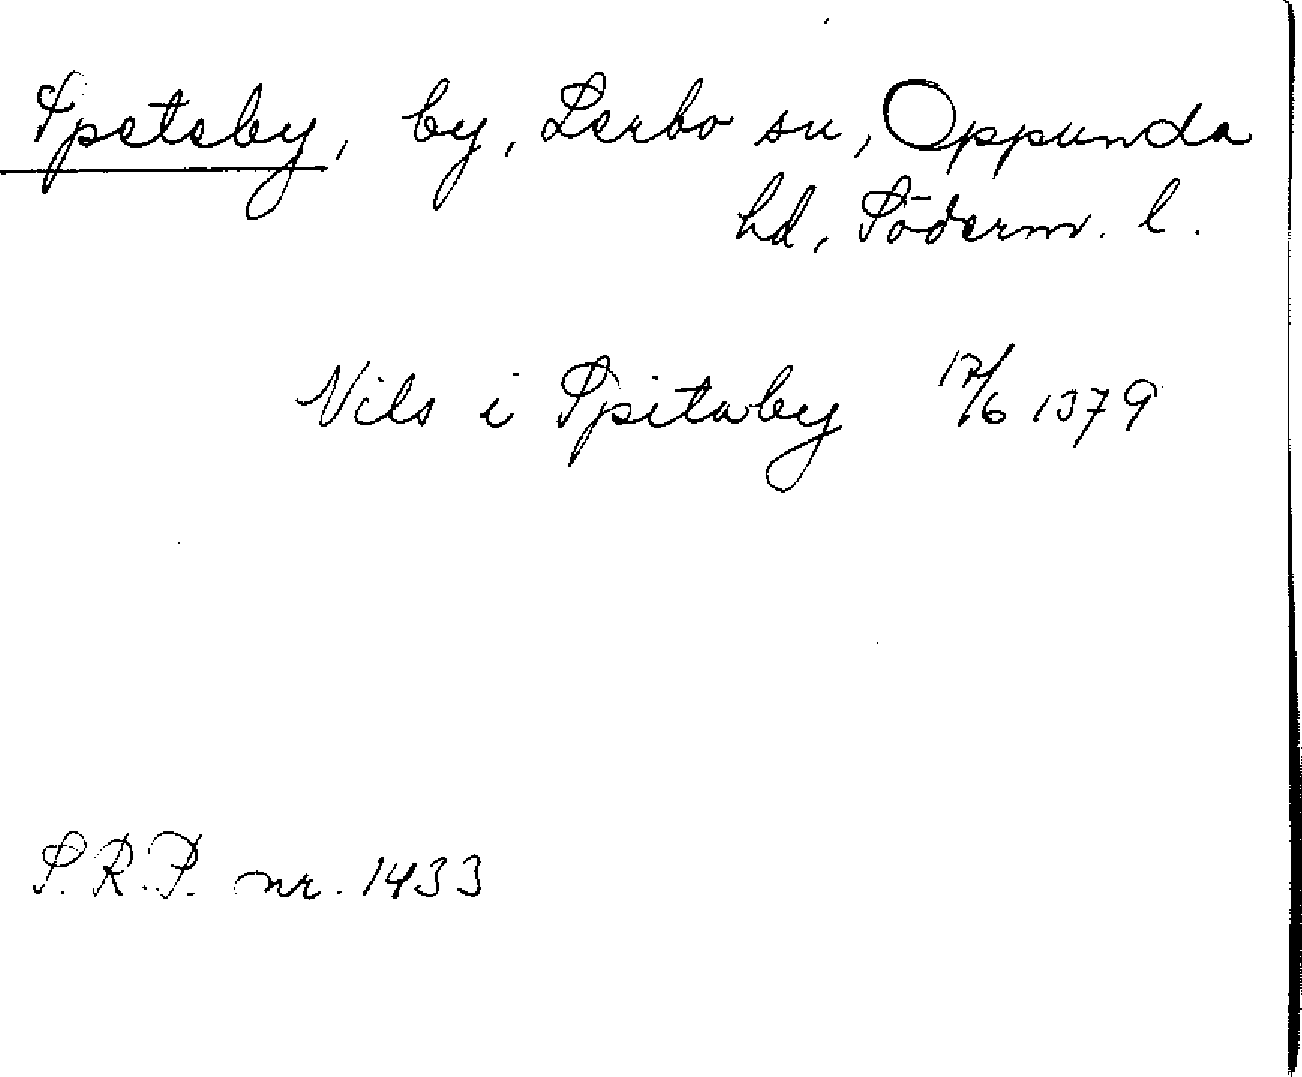 Spetsby, by, Lerbo sn, Oppunda
hd, Söderm. l.
Nils i Spitaby 17/6 1379
S.R.P. nr. 1433